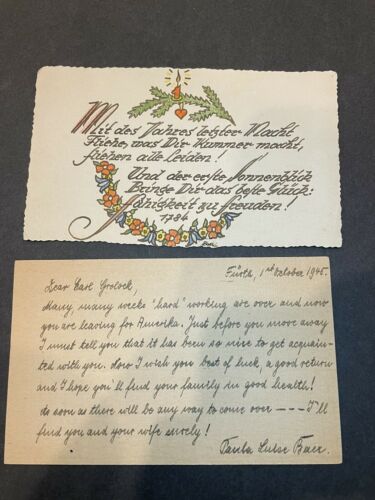 Mit des Jahres letzter Nacht
Fliehe, was Dir Kummer macht,
fliehen alle Leiden!
Und der erste Sonnenblick
Bringe Dir das beste Glück:
Fähigkeit zu Freuden!
1784
Fürth, 1st October 1945.
Dear Earl
Many, many weeks "hard" working are over and now
you are leaving for Amerika. Just before you move away
I must tell you that it has been so nice to get acquain-
ted with you. Now I wish you best of luck, a good return
and I hope you'll find your family in good health!
As soon as there will be any way to come over --- I'll
find you and your wife surely!
Paula Luise